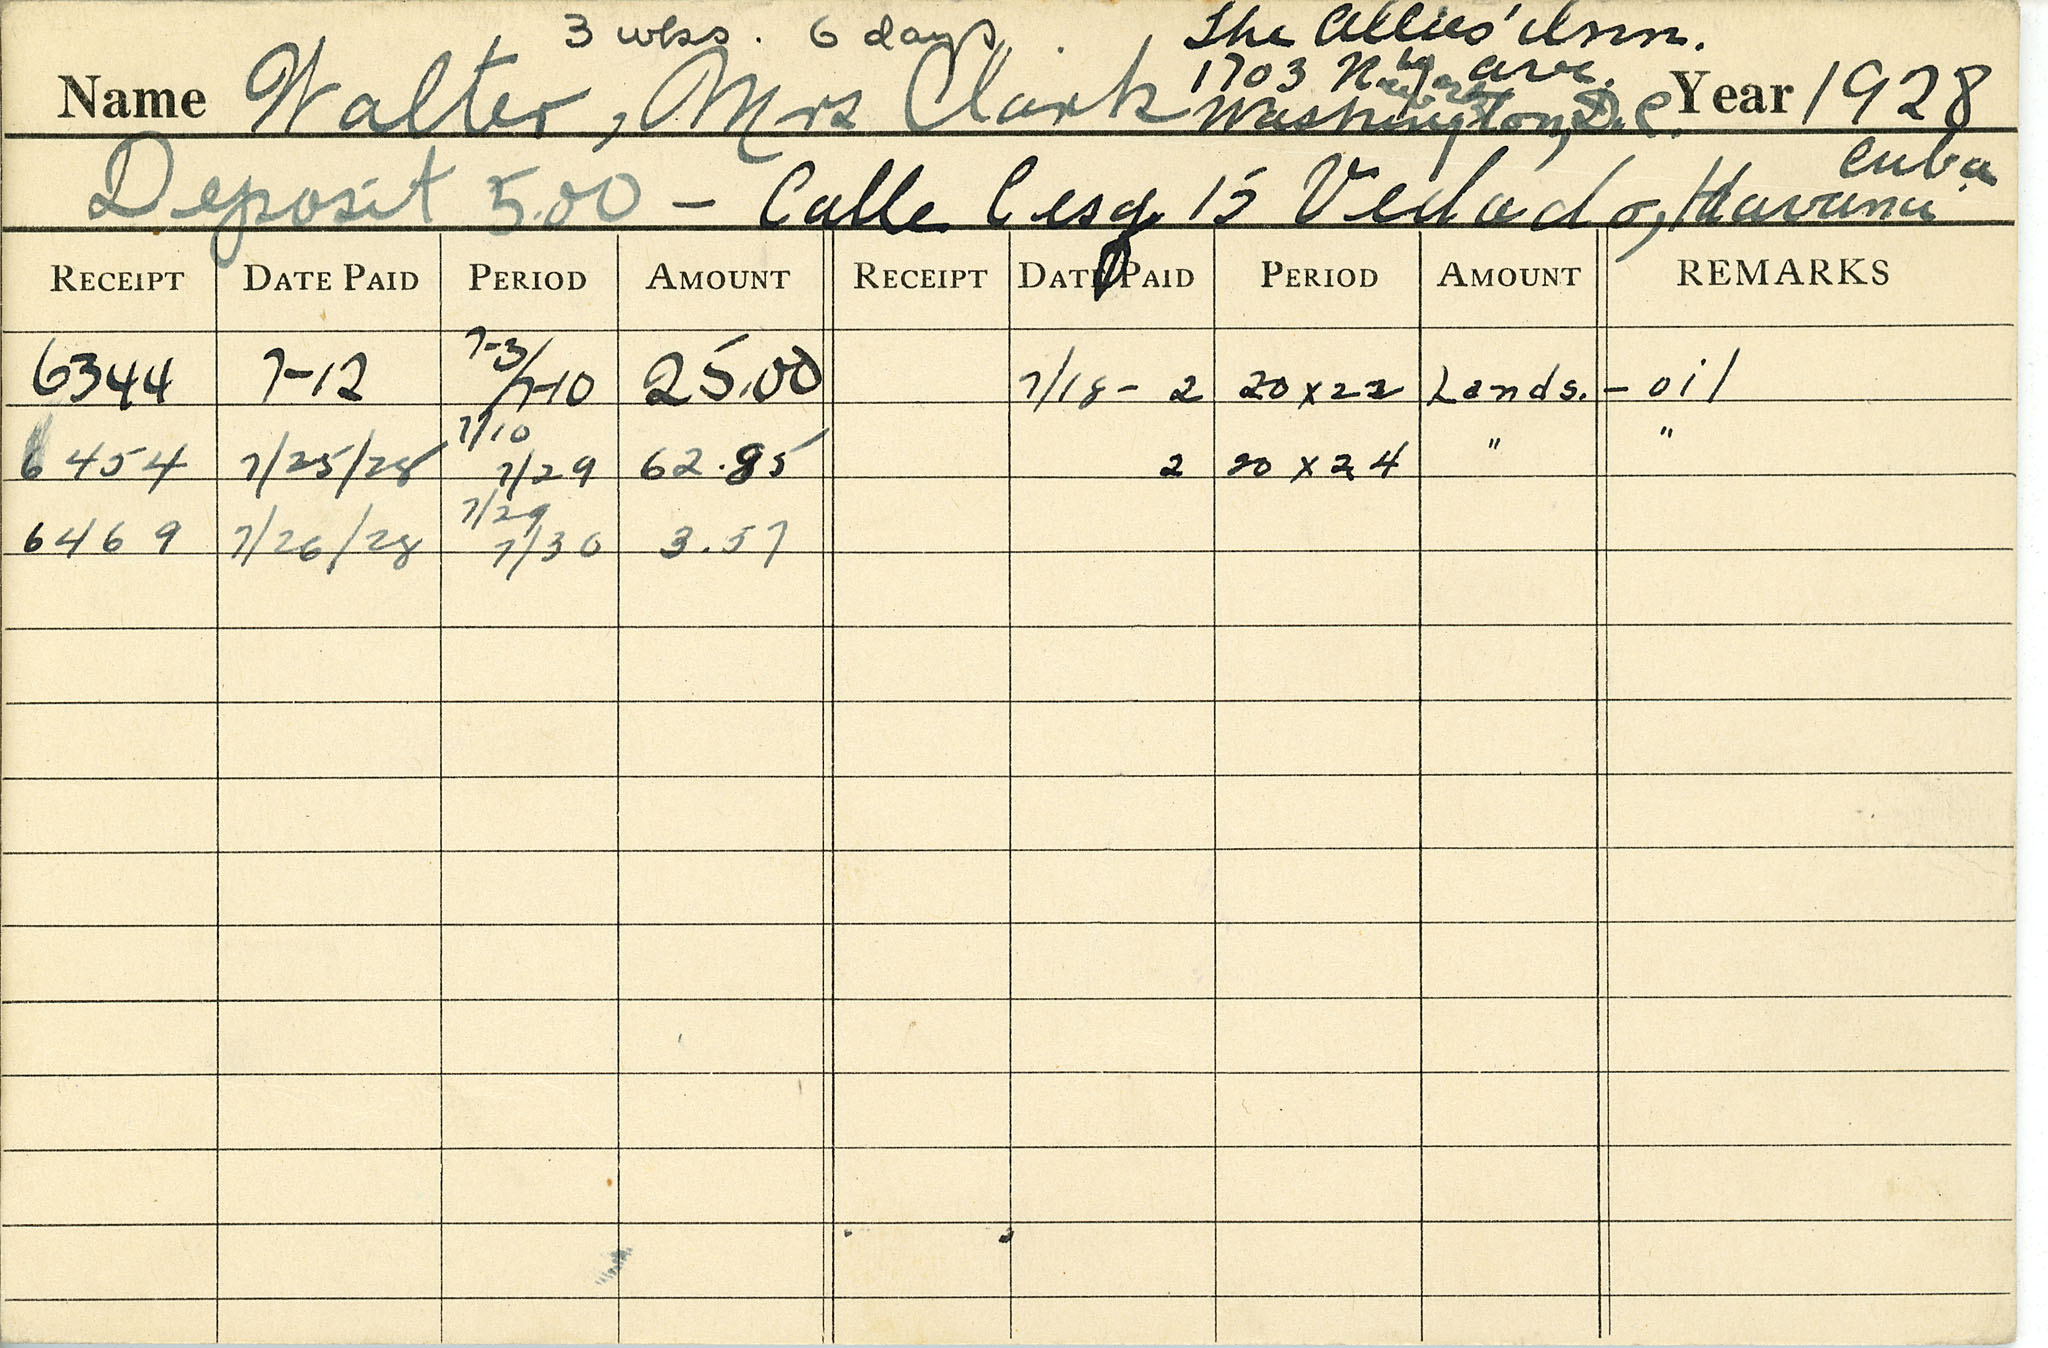 3 wks. 6 days. The Allies' Inn.
1703 New York Ave.
Name Walter, Mrs Clark Washington, D.C. Year 1928
Deposit 5.00 - Calle C esq. 15 Vedado, Havana Cuba
RECEIPT DATE PAID PERIOD AMOUNT RECEIPT DATE PAID PERIOD AMOUNT REMARKS
6344 7-12 7-3/7-10 25.00 7/18- 2 20 x 22 Lands. - oil
6454 7/25/28 7/10 7/29 62.85 2 20 x 24 " "
6469 7/26/28 7/29 7/30 3.57